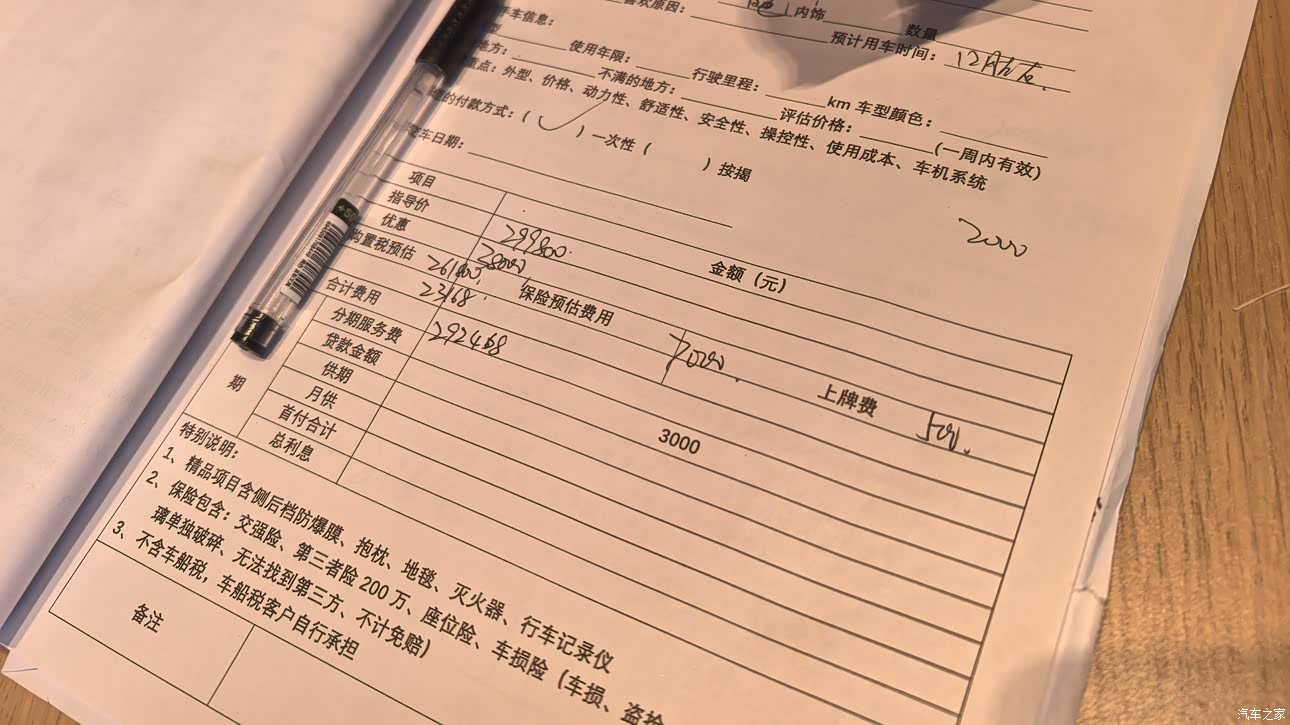 喜欢原因： 内饰 数量
车信息： 预计用车时间：12月左右
使用年限： 行驶里程： km 车型颜色：
地方： 不满的地方： 评估价格： (一周内有效)
重点：外型、价格、动力性、舒适性、安全性、操控性、使用成本、车机系统
的付款方式：( ✓ ) 一次性 ( ) 按揭
交车日期：
2000
项目 金额（元）
指导价 299800
优惠 38000
261800
购置税预估 23168 保险预估费用 7000 上牌费 500
合计费用 292468
分期服务费 3000
贷款金额
供期
期
月供
首付合计
总利息
特别说明：
1、精品项目含侧后档防爆膜、抱枕、地毯、灭火器、行车记录仪
2、保险包含：交强险、第三者险 200 万、座位险、车损险（车损、盗抢
璃单独破碎、无法找到第三方、不计免赔）
3、不含车船税，车船税客户自行承担
备注
汽车之家